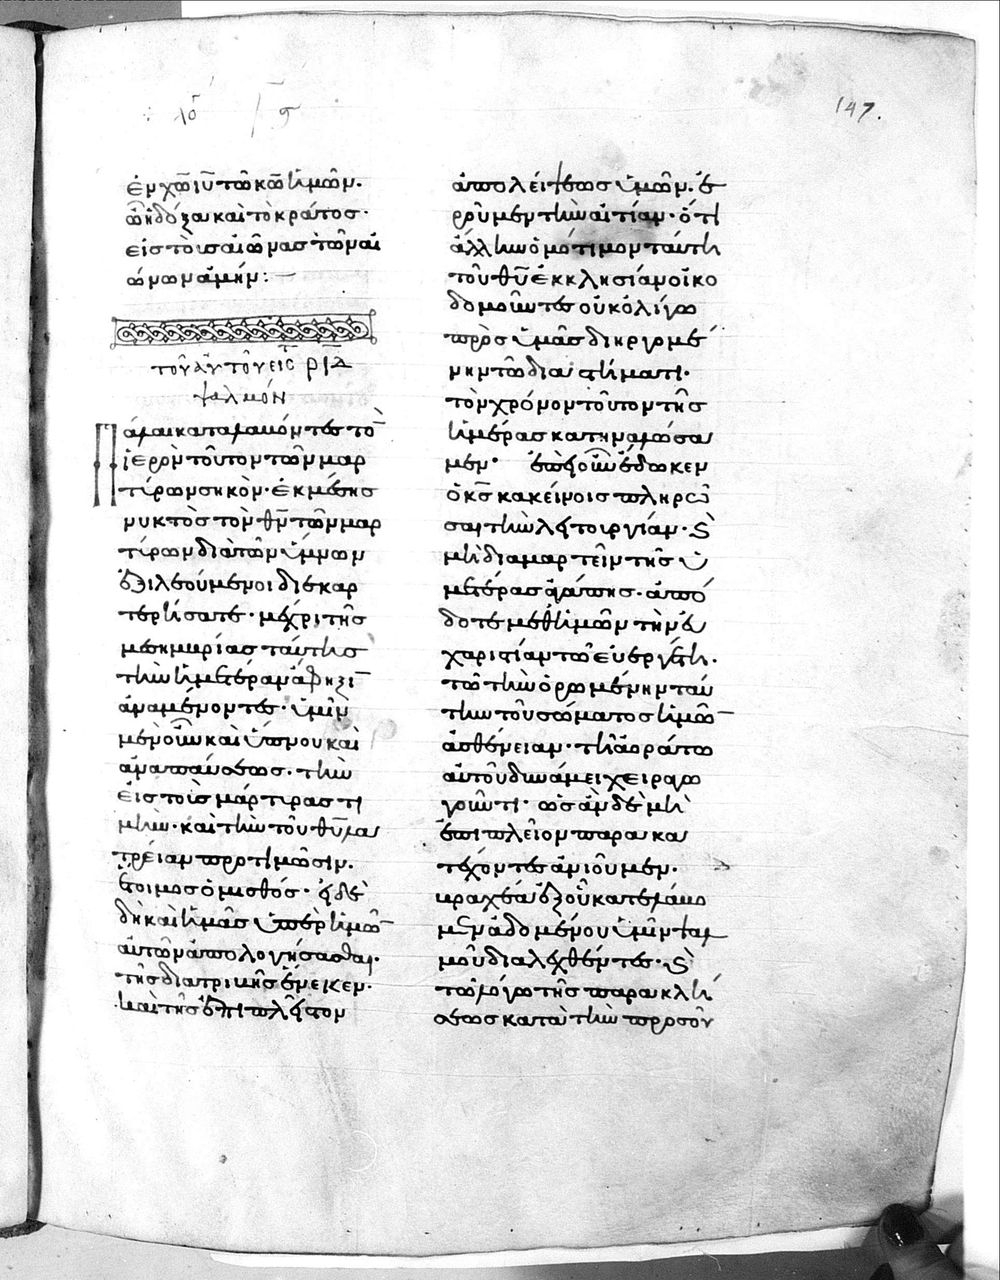 147.
ἐν χ̅ω̅ ἰ̅υ̅ τῶ κ̅ω̅ ἡμῶν.
ὧ ἡ δόξα καὶ τὸ κράτος·
εἰς τοὺς αἰῶνας τῶν αἰ
ώνων ἀμήν:
τοῦ αὐτοῦ εἰς ριδ
ψαλμόν
Πάλαι καταλαμόντες τὸ
ἱερὸν τοῦτον τῶν μαρ
τύρων σηκὸν· ἐκ μέσης
νυκτὸς τὸν θ̅ν̅ τῶν μαρ
τύρων διὰ τῶν ὕμνων
ἐξιλεούμενοι διεκαρ
τερήσατε· μέχρι τῆς
μεσημβρίας ταύτης
τὴν ἡμετέραν ἄφιξι
ἀναμένοντες· ὑμῖν
μὲν οὖν καὶ ὕπνου καὶ
ἀναπαύσεως· τὴν
εἰς τοὺς μάρτυρας τι
μὴν· καὶ τὴν τοῦ θ̅υ̅ λα
τρείαν προτιμῶσιν.
ἕτοιμος ὁ μισθός· εἰ δὲ
δὴ καὶ ἡμᾶς ὑπὲρ ἡμῶ
αὐτῶν ἀπολογήσασθαι·
τῆς διατριβῆς ἕνεκεν·
καὶ τῆς ἐπὶ πλεῖστον
ἀπολείψεως ὑμῶν. ἐ
ροῦμεν τὴν αἰτίαν· ὅτι
ἄλλην ὁμότιμον ταύτη
τοῦ θ̅υ̅ ἐκκλησίαν οἰκο
δομοῦντες οὐκ ὀλίγω
πρὸς ὑμᾶς διηργμέ
νην τῶ διαστήματι·
τὸν χρόνον τοῦτον τῆς
ἡμέρας κατηναλώσα
μεν· ἐπεὶ οὖν ἔδωκεν
ὁ κ̅ς̅ κακείνοις πληρῶ
σαι τὴν λειτουργίαν· καὶ
μὴ διαμαρτεῖν τῆς ὑ
μετέρας ἀγάπης· ἀπό
δοτε μεθ ἡμῶν τὴν εὐ
χαριστίαν τῶ εὐεργέτη·
τῶ τὴν ὁρωμένην ταύ
την τοῦ σώματος ἡμῶ
ἀσθένειαν· τῆ ἀοράτω
αὐτοῦ δυνάμει χειραγω
γοῦντι· ὡς ἂν δὲ μὴ
ἐπιπλεῖον παρακα
τέχοντες ἀνιοῦμεν·
βραχέα ἐξ οὗ κατελάβο
μεν ἀδομένου ὑμῖν ψαλ
μοῦ διαλεχθέντες· καὶ
τῶ λόγω τῆς παρακλή
σεως κατὰ τὴν προσοῦ